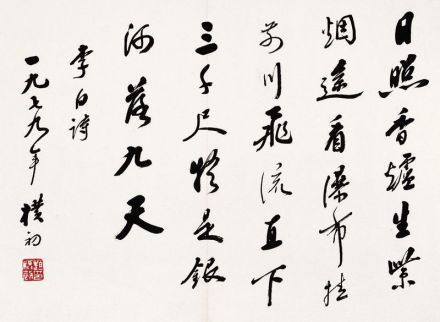 日照香炉生紫
烟遥看瀑布挂
前川飛流直下
三千尺疑是銀
河落九天
李白詩
一九七九年
樸初